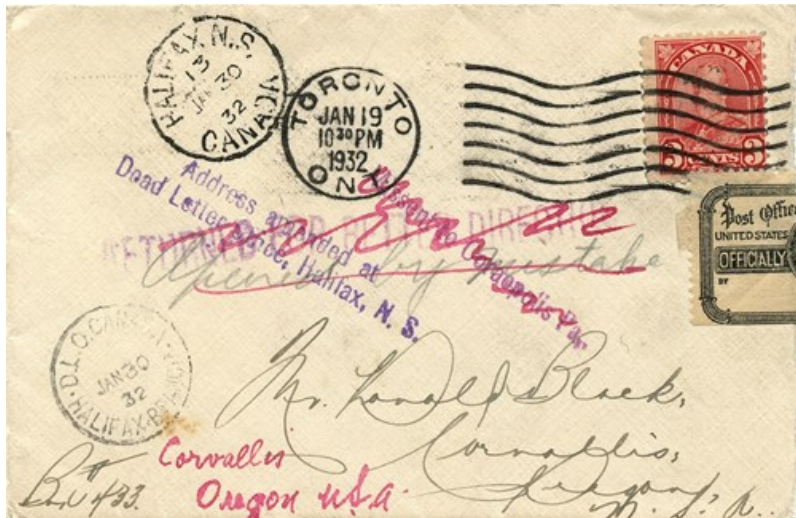 HALIFAX, N.S.
13
JAN 30
32
CANADA
TORONTO
JAN 19
10 30 PM
1932
ONT
CANADA
3 CENTS 3
Post Office
UNITED STATES
OFFICIALLY
BY
Address amended at
Dead Letter Office, Halifax, N. S.
Missent to Coraopolis Pa.
RETURNED FOR BETTER DIRECTION
Opened by mistake
D.L.O. CANADA
JAN 30
32
HALIFAX BRANCH
Mr. Donald Black,
Cornallis,
Oregon,
U. S. A.
Corvallis
Oregon U.S.A.
433.